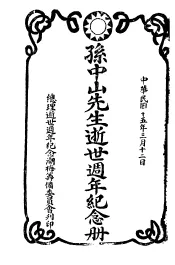 中華民國十五年三月十二日
孫中山先生逝世週年紀念册
總理逝世週年紀念潮梅籌備委員會刊印